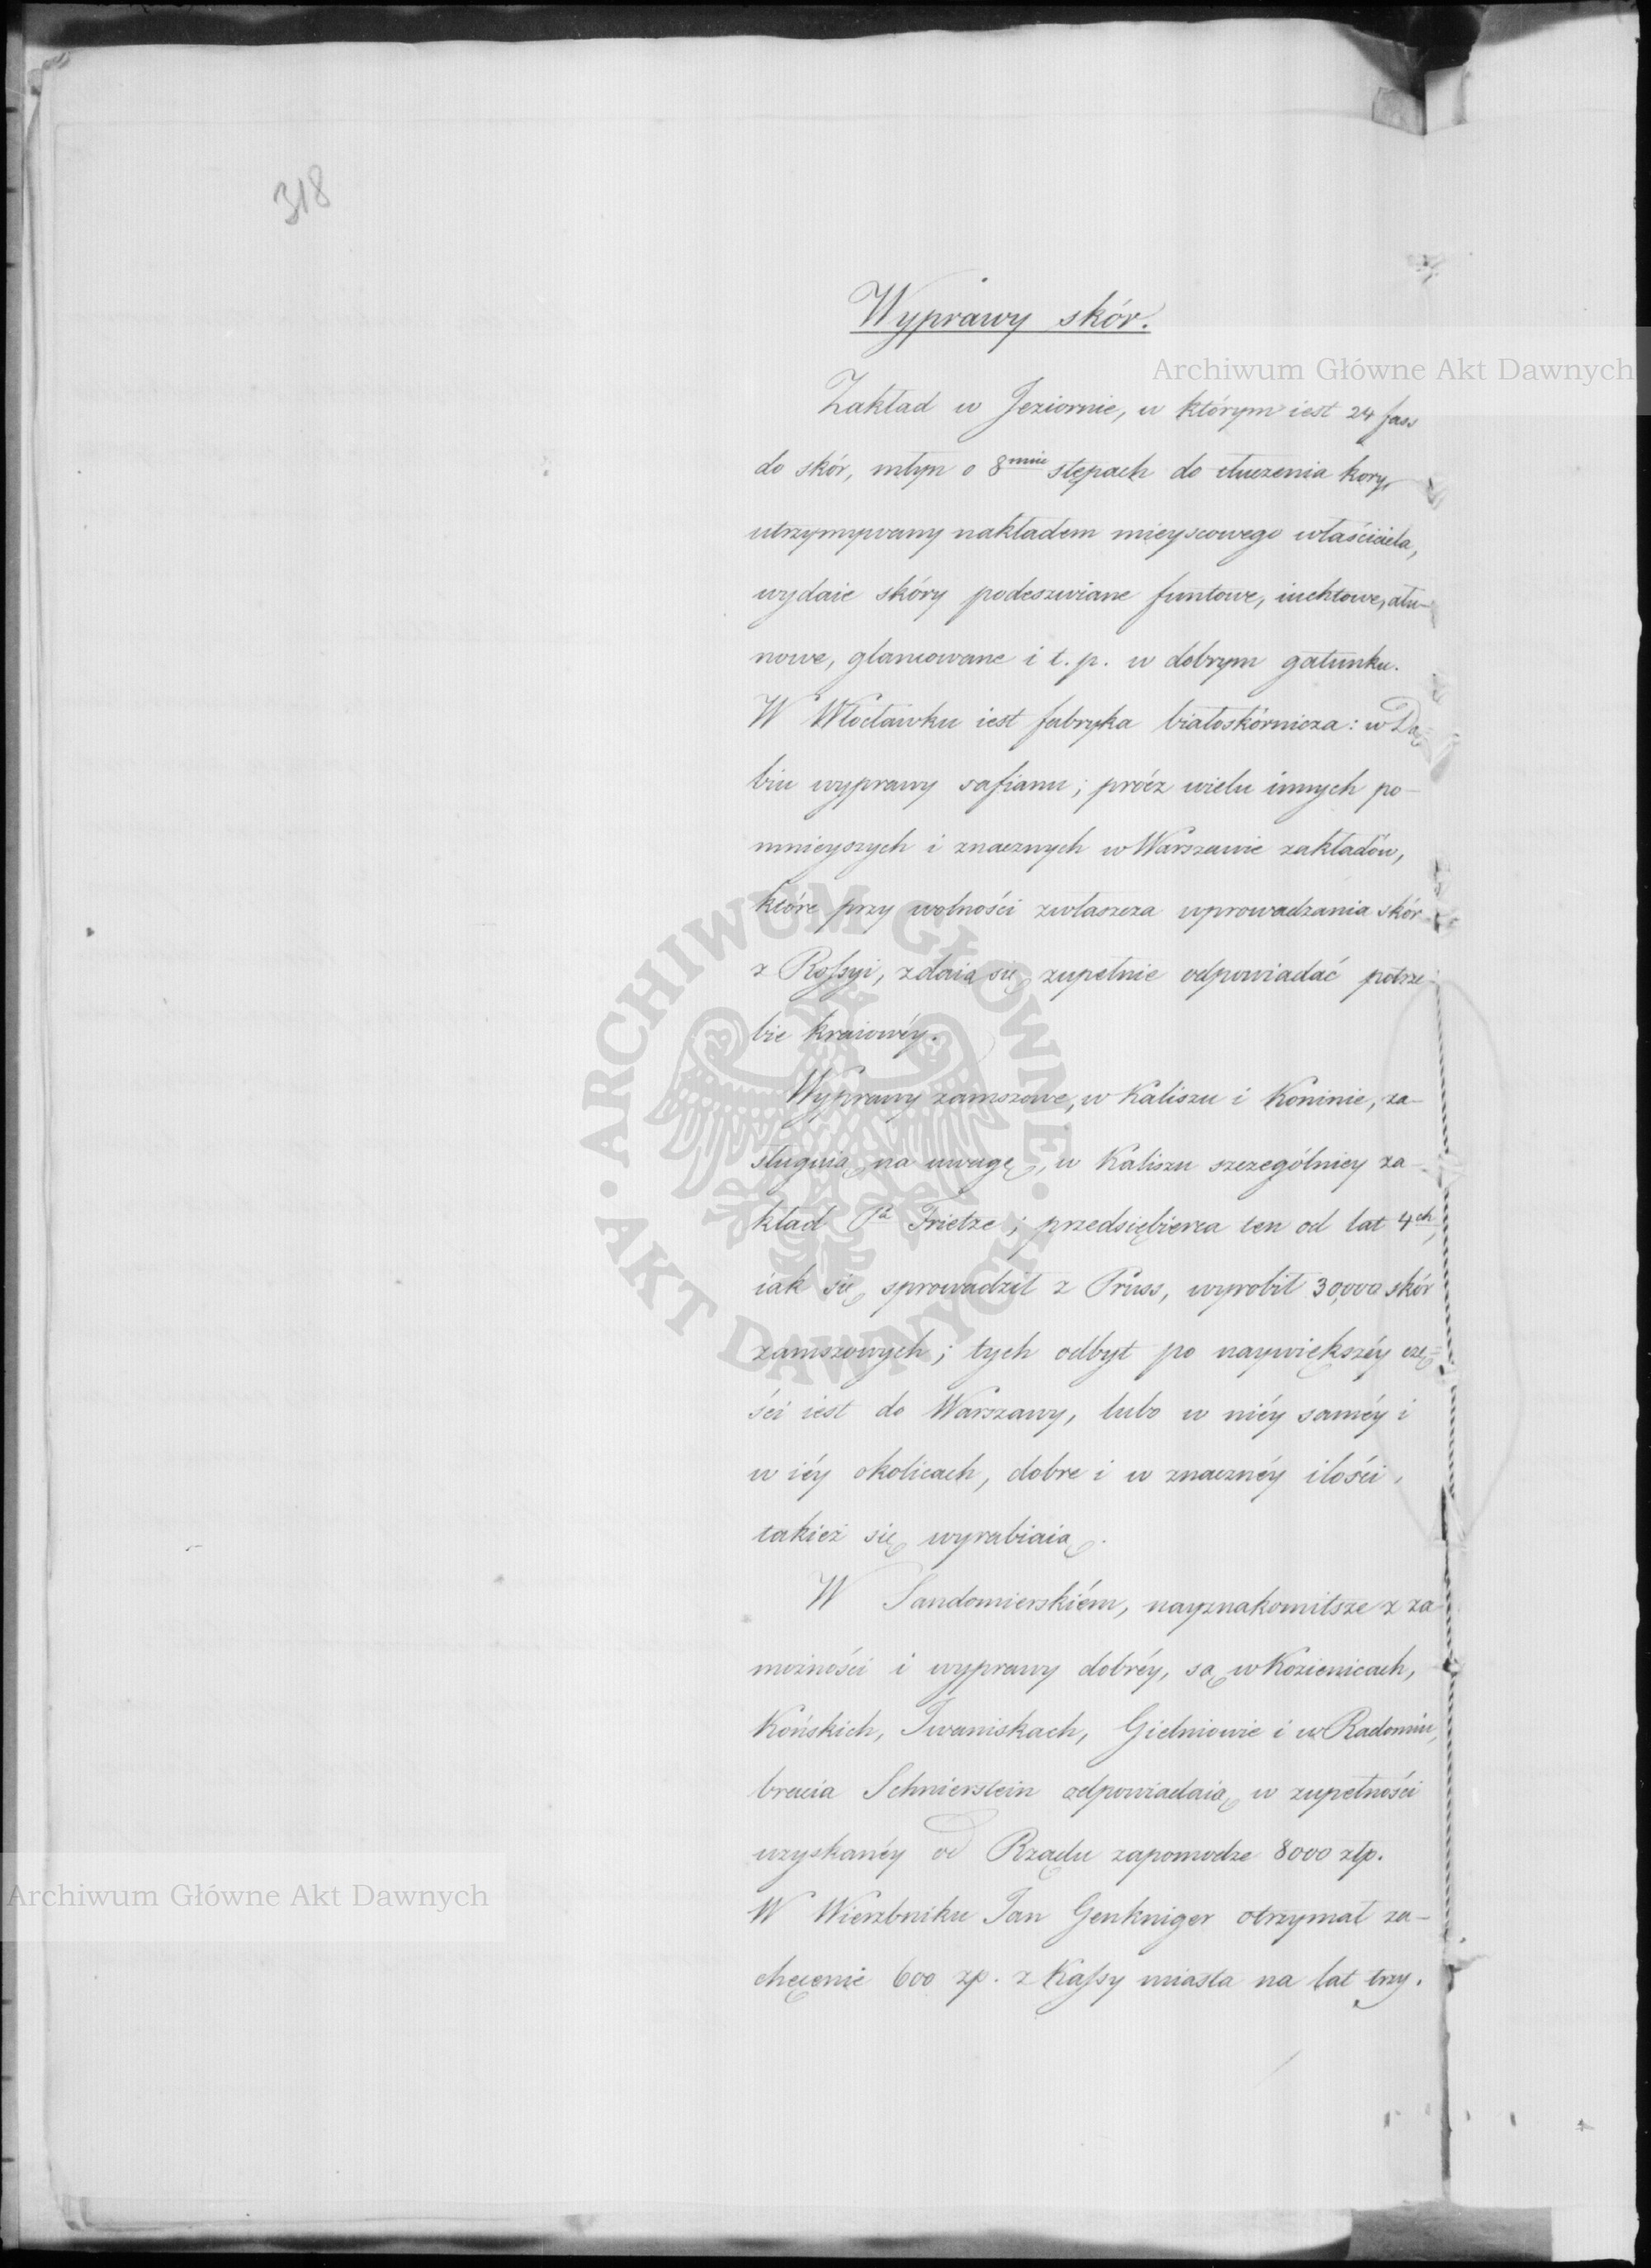 318
Wyprawy skór.
Archiwum Główne Akt Dawnych
Zakład w Jeziornie, w którym iest 24 fass
do skór, młyn o 8miu stępach do tłuczenia kory,
utrzymywany nakładem mieyscowego właściciela,
wydaie skóry podeszwiane funtowe, iuchtowe, ału-
nowe, glancowane i t. p. w dobrym gatunku.
W Włocławku iest fabryka białoskórnicza: w Dą-
biu wyprawy safianu; prócz wielu innych po-
mnieyszych i znacznych w Warszawie zakładów,
które przy wolności zwłaszcza wprowadzania skór
z Rossyi, zdaią się zupełnie odpowiadać potrze-
bie kraiowéy.
Wyprawy zamszowe, w Kaliszu i Koninie, za-
sługuią na uwagę, w Kaliszu szczególniey za-
kład Pa Frietze; przedsiębierca ten od lat 4ch,
iak się sprowadził z Pruss, wyrobił 30,000 skór
zamszowych; tych odbyt po naywiększéy czę-
ści iest do Warszawy, lubo w niéy saméy i
w iéy okolicach, dobre i w znacznéy ilości,
takież się wyrabiaią.
W Sandomierskiém, nayznakomitsze z za-
możności i wyprawy dobréy, są w Kozienicach,
Końskich, Iwaniskach, Gielniowie i w Radomiu,
bracia Schnierstein odpowiadaią w zupełności
uzyskanéy od Rządu zapomodze 8000 złp.
W Wierzbniku Jan Genkniger otrzymał za-
chęcenie 600 zp. z Kassy miasta na lat trzy.
ARCHIWUM GŁÓWNE · AKT DAWNYCH ·
Archiwum Główne Akt Dawnych